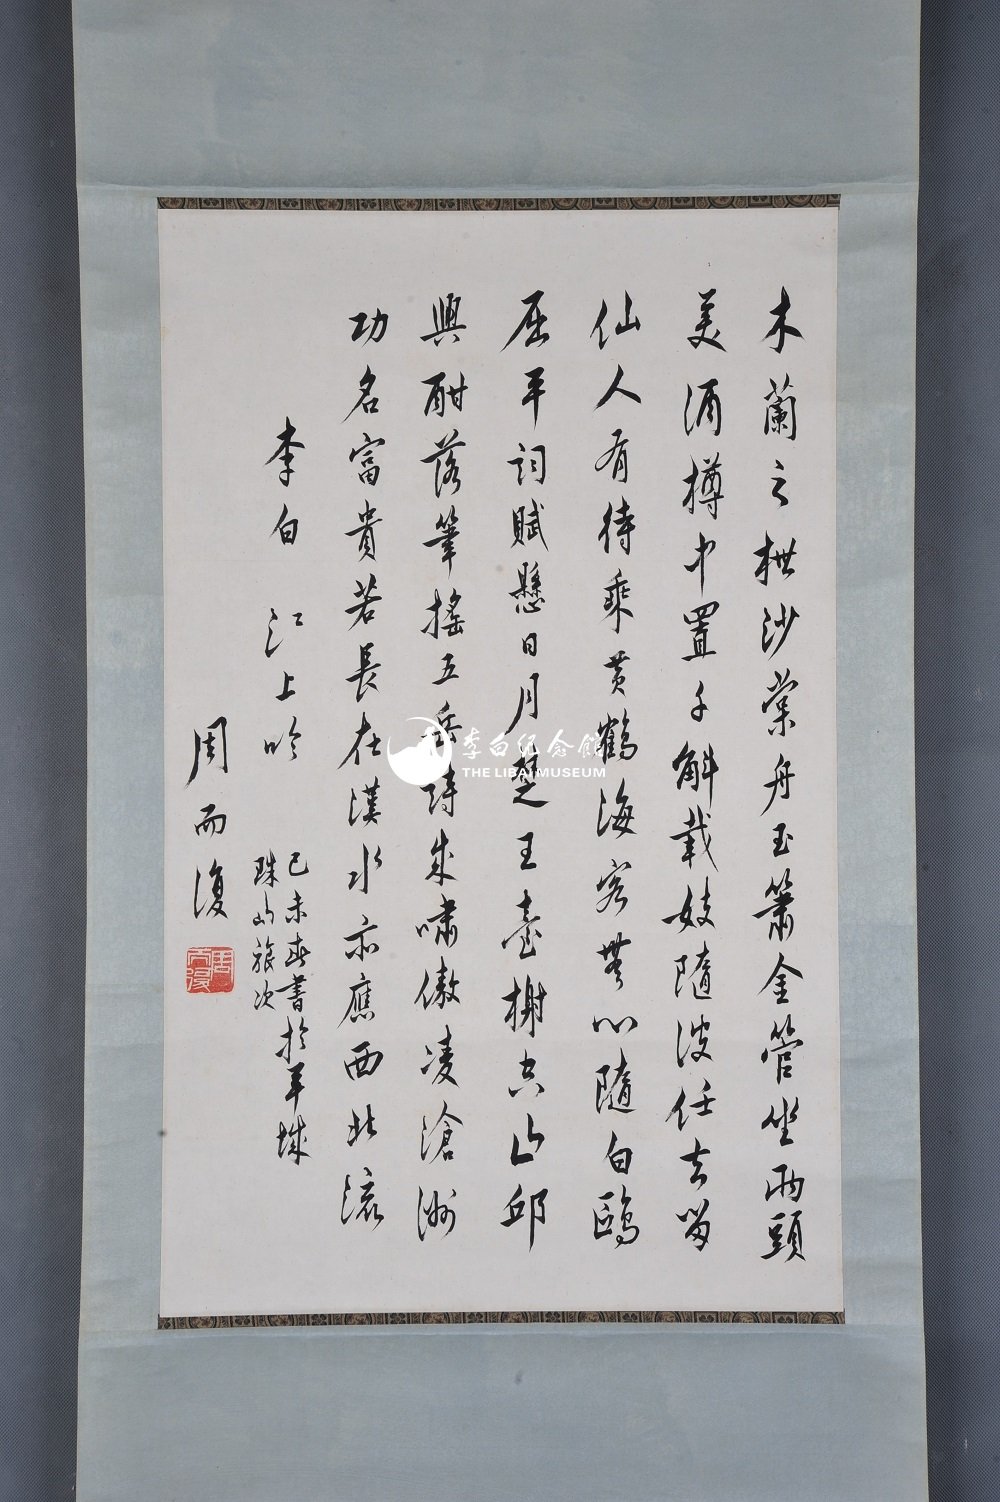 木蘭之枻沙棠舟玉簫金管坐兩頭
美酒樽中置千斛載妓隨波任去留
仙人有待乘黃鶴海客無心隨白鷗
屈平詞賦懸日月楚王臺榭空山邱
興酣落筆搖五岳詩成嘯傲凌滄洲
功名富貴若長在漢水亦應西北流
李白 江上吟
己未春書於羊城
珠島旅次
周而復
周而復
李白纪念館
THE LIBAI MUSEUM